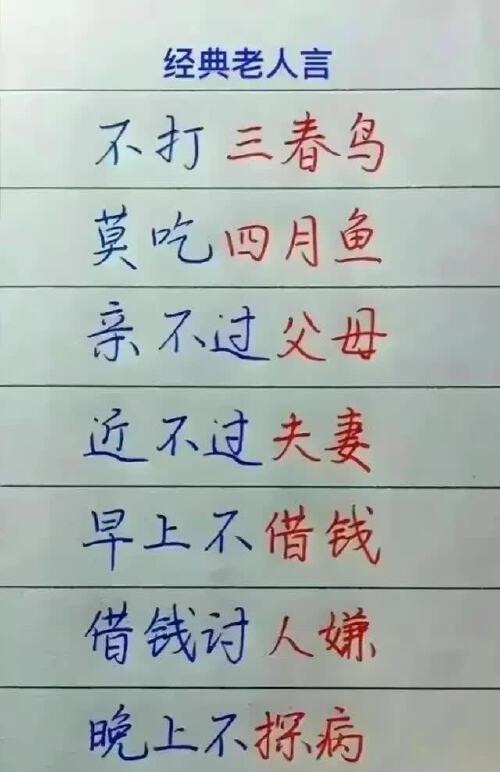 经典老人言
不打三春鸟
莫吃四月鱼
亲不过父母
近不过夫妻
早上不借钱
借钱讨人嫌
晚上不探病